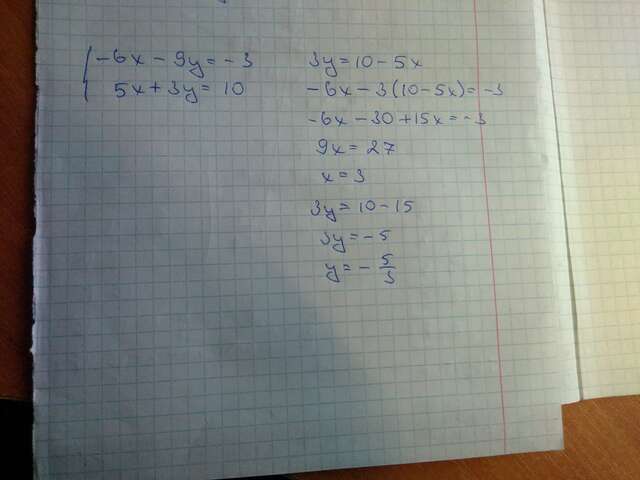 -6x - 9y = -3
5x + 3y = 10
3y = 10 - 5x
-6x - 3(10 - 5x) = -3
-6x - 30 + 15x = -3
9x = 27
x = 3
3y = 10 - 15
3y = -5
y = - 5/3